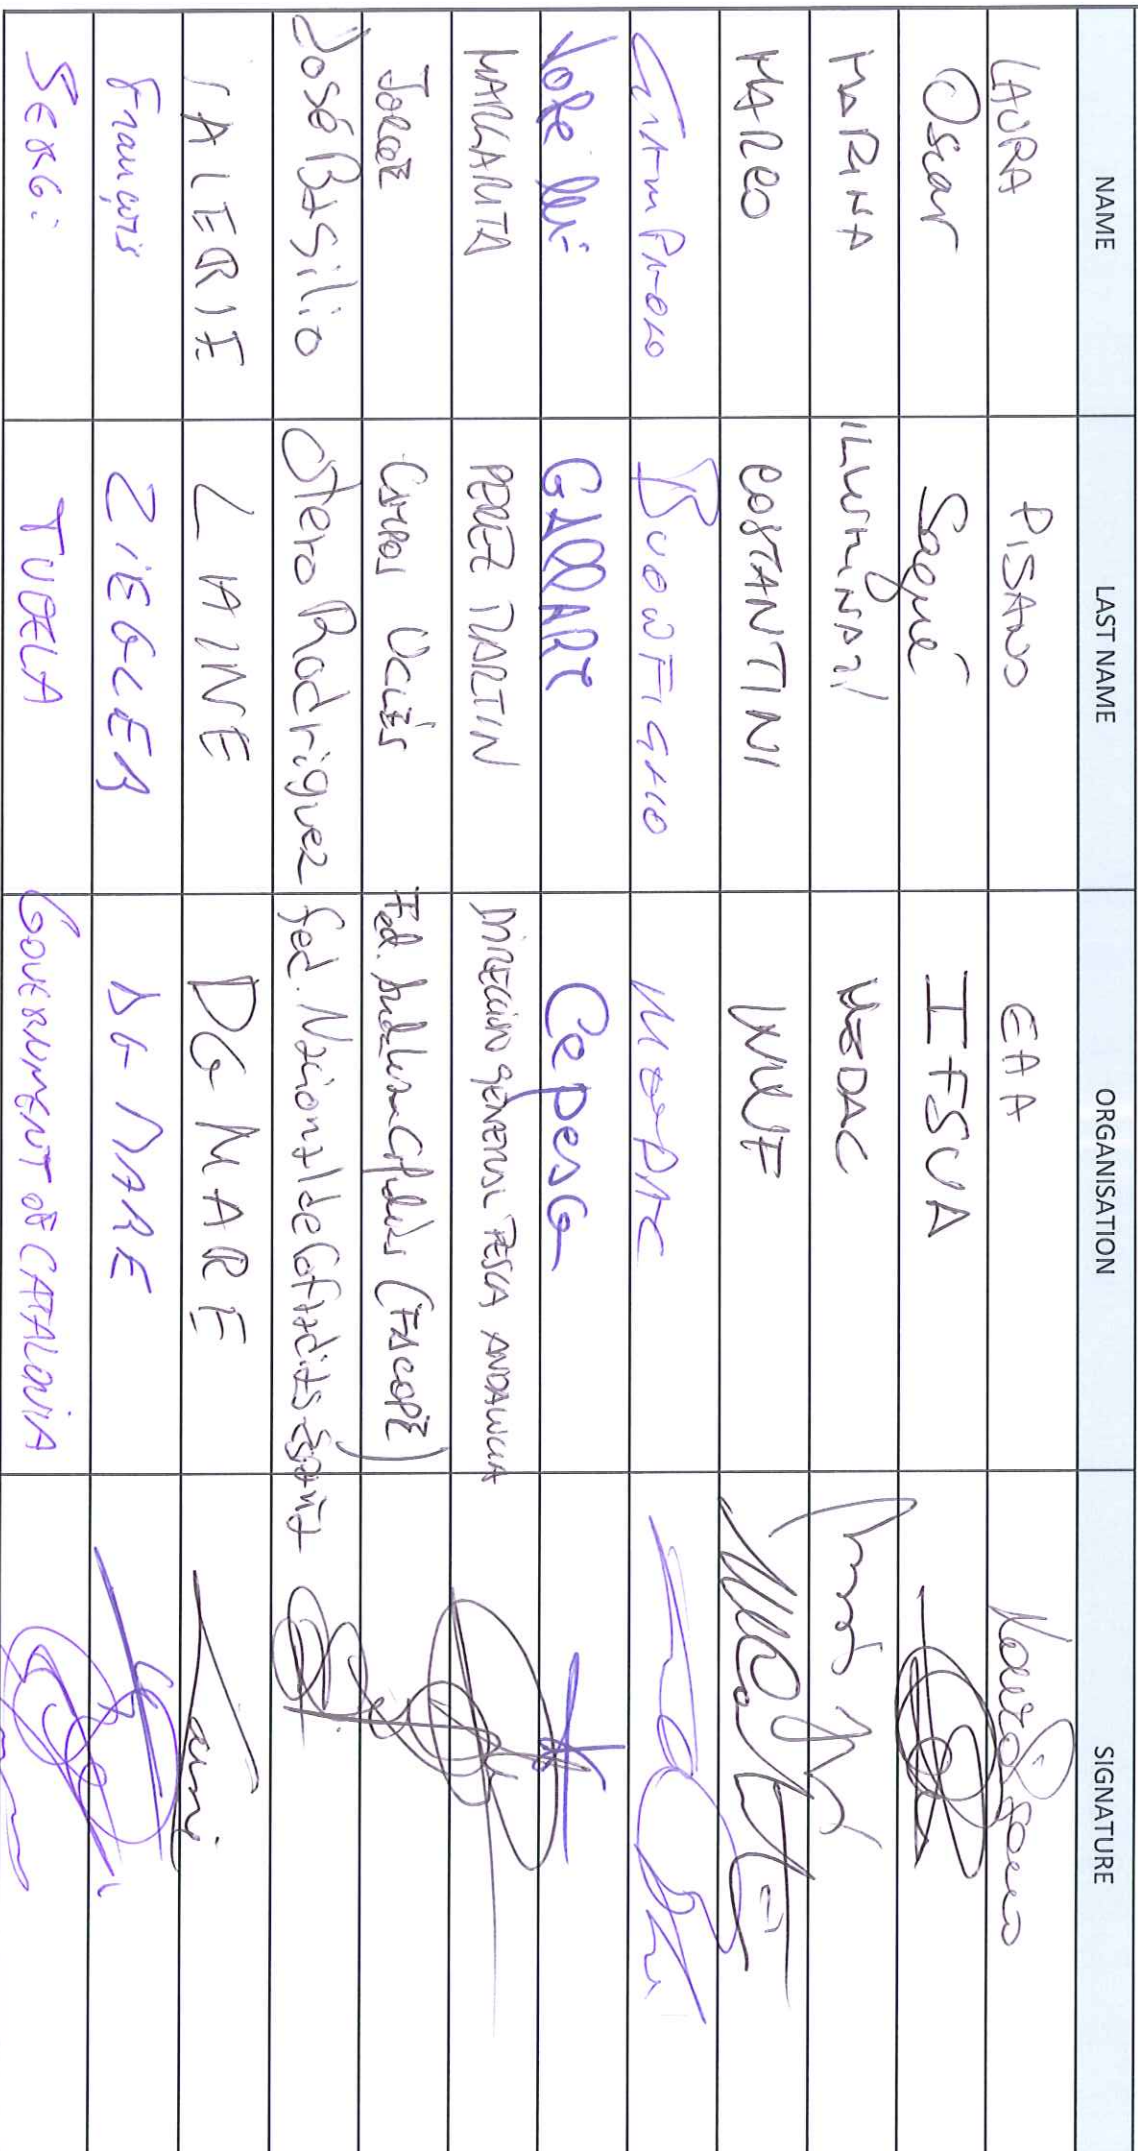 NAME LAST NAME ORGANISATION SIGNATURE
LAURA PISANO EAA
Oscar Sagué IFSUA
MARINA ILLUMINATI MEDAC
MARCO COSTANTINI WWF
GIAMPAOLO BUONFIGLIO MEDAC
GALLART Cepesca
MARGARITA PEREZ MARTIN DIRECCIÓN GENERAL PESCA ANDALUCIA
JORGE CAMPOS UCLÉS Fed. Andaluza Cofradías (FACOPE)
José Basilio Otero Rodriguez fed. Nacional de Cofradias España
VALERIE LAINE DG MARE
François ZIEGLER DG MARE
SERGI TUDELA GOVERNMENT OF CATALONIA